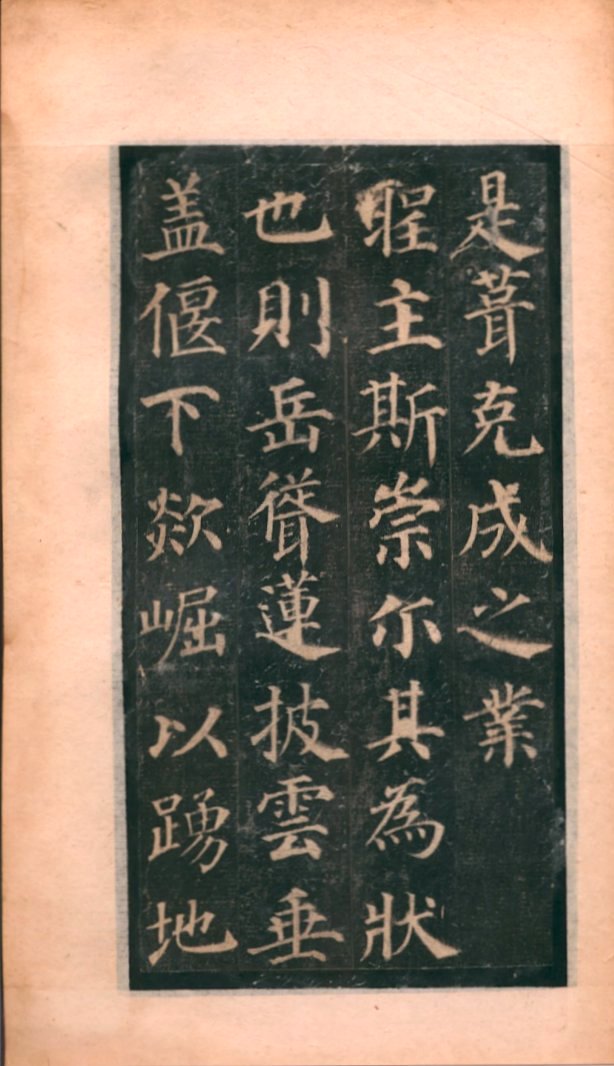 是葺克成之業
聖主斯崇尔其為狀
也則岳聳蓮披雲垂
盖偃下欻崛以踴地